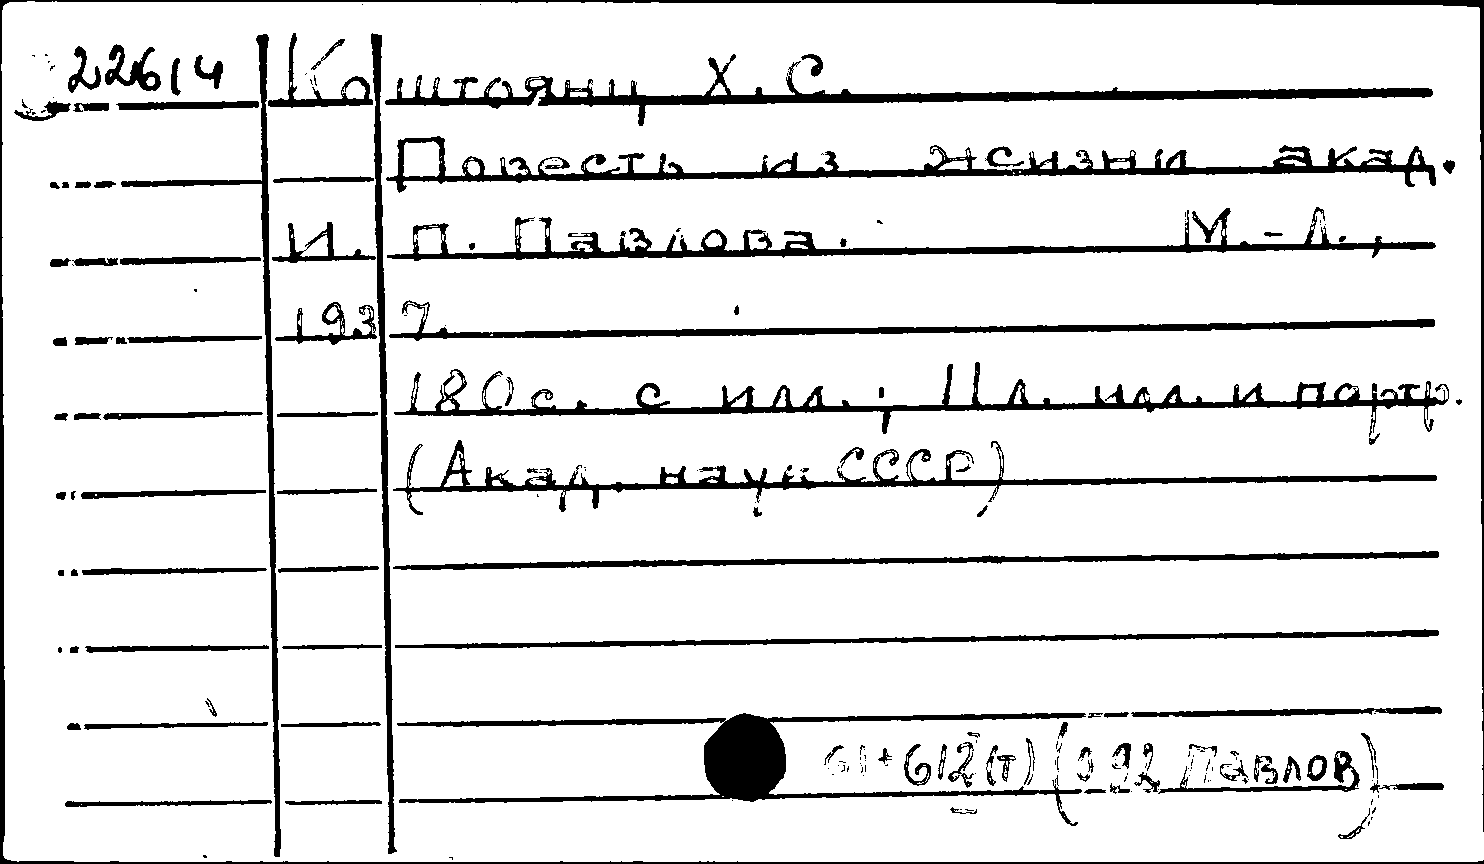 22614 Коштоянц Х. С.
Повесть из жизни акад.
И. П. Павлова. М.-Л.,
1937.
180 с. с илл.; 11 л. илл. и портр.
(Акад. наук СССР)
61+612(т) (092 Павлов)